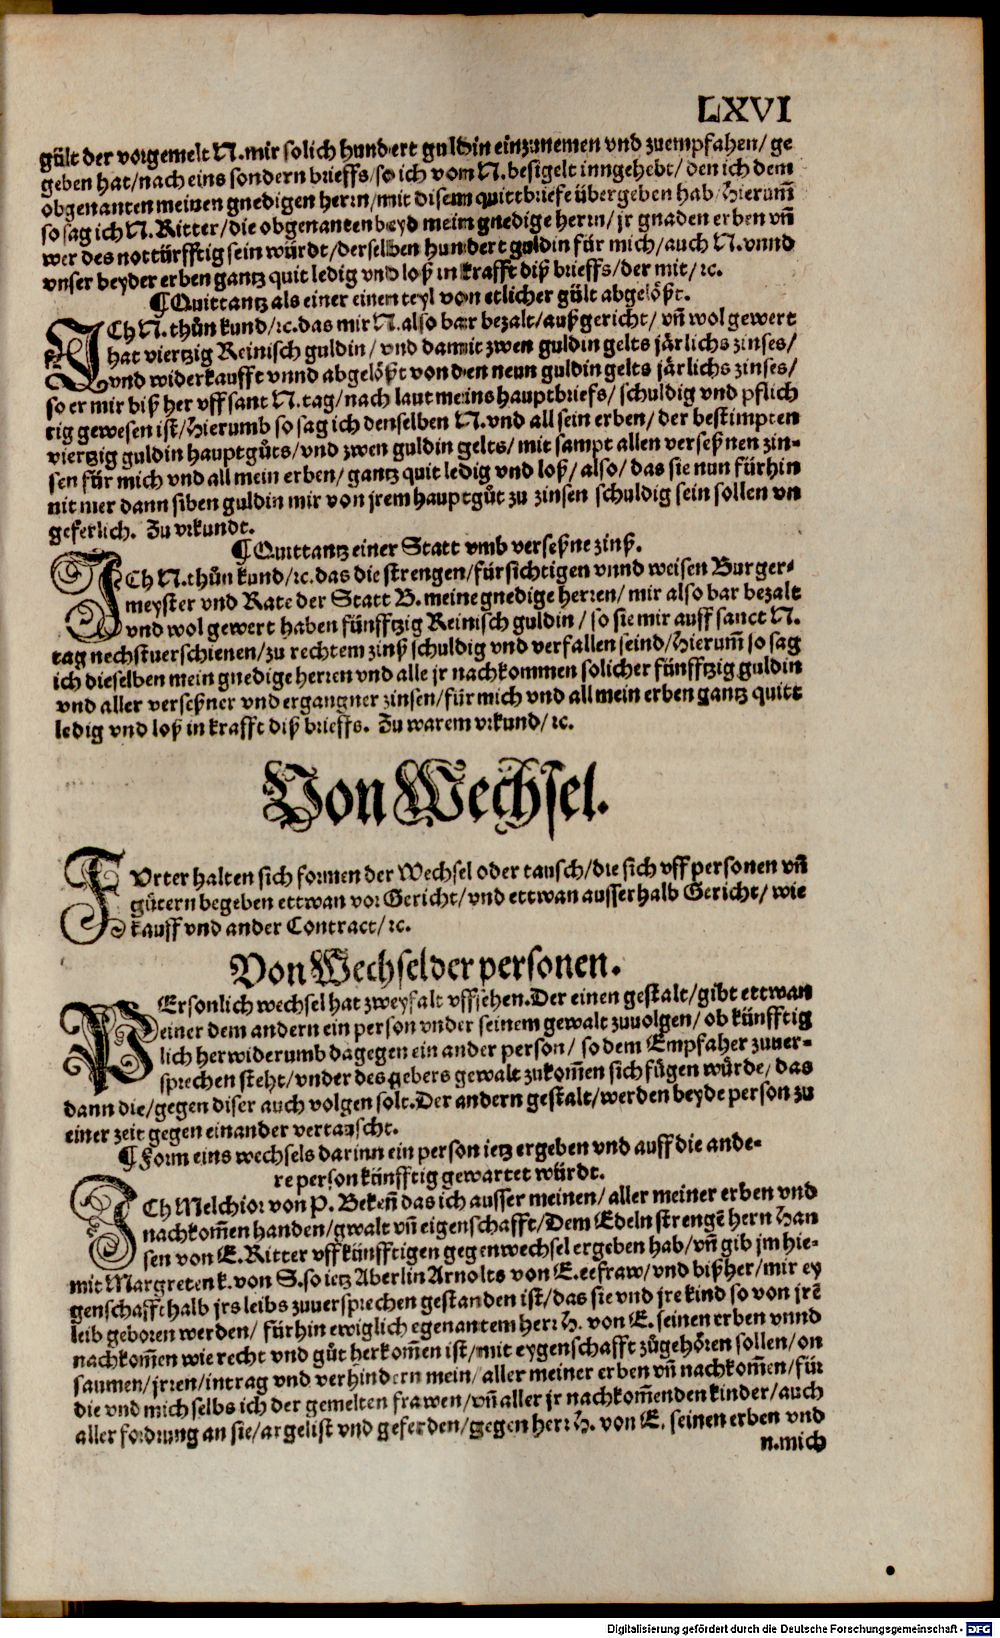 LXVI
gült der vorgemelt N. mir solich hundert guldin einzunemen vnd zuempfahen/ ge
geben hat/nach eins sondern brieffs/so ich vom N. besigelt inngehebt/ den ich dem
obgenanten meinen gnedigen herrn/mit disem quittbriefe übergeben hab/Hierum̃
so sag ich N. Ritter/die obgenanten beyd mein gnedige herrn/jr gnaden erben vñ
wer des nottürfftig sein würdt/derselben hundert guldin für mich/auch N. vnnd
vnser beyder erben gantz quit ledig vnd loß in krafft diß brieffs/der mit/ꝛc.
¶Quittantz als einer einen teyl von etlicher gült abgelößt.
ICh N. thůn kund/ꝛc. das mir N. also bar bezalt/außgericht/ vñ wol gewert
hat viertzig Reinisch guldin/ vnd damit zwen guldin gelts järlichs zinses/
vnd widerkaufft vnnd abgelößt von den neun guldin gelts järlichs zinses/
so er mir biß her vff sant N. tag/nach laut meins hauptbriefs/ schuldig vnd pflich
tig gewesen ist/Hierumb so sag ich denselben N. vnd all sein erben/ der bestimpten
viertzig guldin hauptgůts/vnd zwen guldin gelts/ mit sampt allen verseßnen zin-
sen für mich vnd all mein erben/ gantz quit ledig vnd loß/ also/ das sie nun fürhin
nit mer dann siben guldin mir von jrem hauptgůt zu zinsen schuldig sein sollen vn
geferlich. Zu vrkundt.
¶Quittantz einer Statt vmb verseßne zinß.
ICh N. thůn kund/ꝛc. das die strengen/fürsichtigen vnnd weisen Burger-
meyster vnd Rate der Statt B. meine gnedige herren/ mir also bar bezalt
vnd wol gewert haben fünfftzig Reinisch guldin/ so sie mir auff sanct N.
tag nechstuerschienen/zu rechtem zinß schuldig vnd verfallen seind/Hierum̃ so sag
ich dieselben mein gnedige herren vnd alle jr nachkommen solicher fünfftzig guldin
vnd aller verseßner vnd ergangner zinsen/für mich vnd all mein erben gantz quitt
ledig vnd loß in krafft diß brieffs. Zu warem vrkund/ꝛc.
Von Wechsel.
FVrter halten sich formen der Wechsel oder tausch/die sich vff personen vñ
gütern begeben ettwan vor Gericht/vnd ettwan ausserhalb Gericht/ wie
kauff vnd ander Contract/ꝛc.
Von Wechsel der personen.
PErsonlich wechsel hat zweyfalt vffsehen. Der einen gestalt/gibt ettwan
einer dem andern ein person vnder seinem gewalt zuuolgen/ ob künfftig
lich herwiderumb dagegen ein ander person/ so dem Empfaher zuuer-
sprechen steht/vnder des gebers gewalt zukom̃en sich fügen würde/ das
dann die/gegen diser auch volgen solt. Der andern gestalt/werden beyde person zu
einer zeit gegen einander vertauscht.
¶Form eins wechsels darinn ein person ietz ergeben vnd auff die ande-
re person künfftig gewartet würdt.
ICh Melchior von P. Beken̄ das ich ausser meinen/ aller meiner erben vnd
nachkom̃en handen/gwalt vñ eigenschafft/Dem Edeln strengẽ hern Han
sen von E. Ritter vff künfftigen gegenwechsel ergeben hab/vñ gib jm hie-
mit Margreten k. von S. so ietz Aberlin Arnolts von E. eefraw/vnd bißher/mir ey
genschafft halb jrs leibs zuuersprechen gestanden ist/das sie vnd jre kind so von jrẽ
leib geboren werden/ fürhin ewiglich egenantem herr H. von E. seinen erben vnnd
nachkom̃en wie recht vnd gůt herkom̃en ist/mit eygenschafft zůgehören sollen/on
saumen/jrren/intrag vnd verhindern mein/aller meiner erben vñ nachkom̃en/für
die vnd mich selbs ich der gemelten frawen/vñ aller jr nachkom̃enden kinder/auch
aller fordrung an sie/argelist vnd geferden/gegen herr H. von E. seinen erben vnd
n. mich
Digitalisierung gefördert durch die Deutsche Forschungsgemeinschaft - DFG